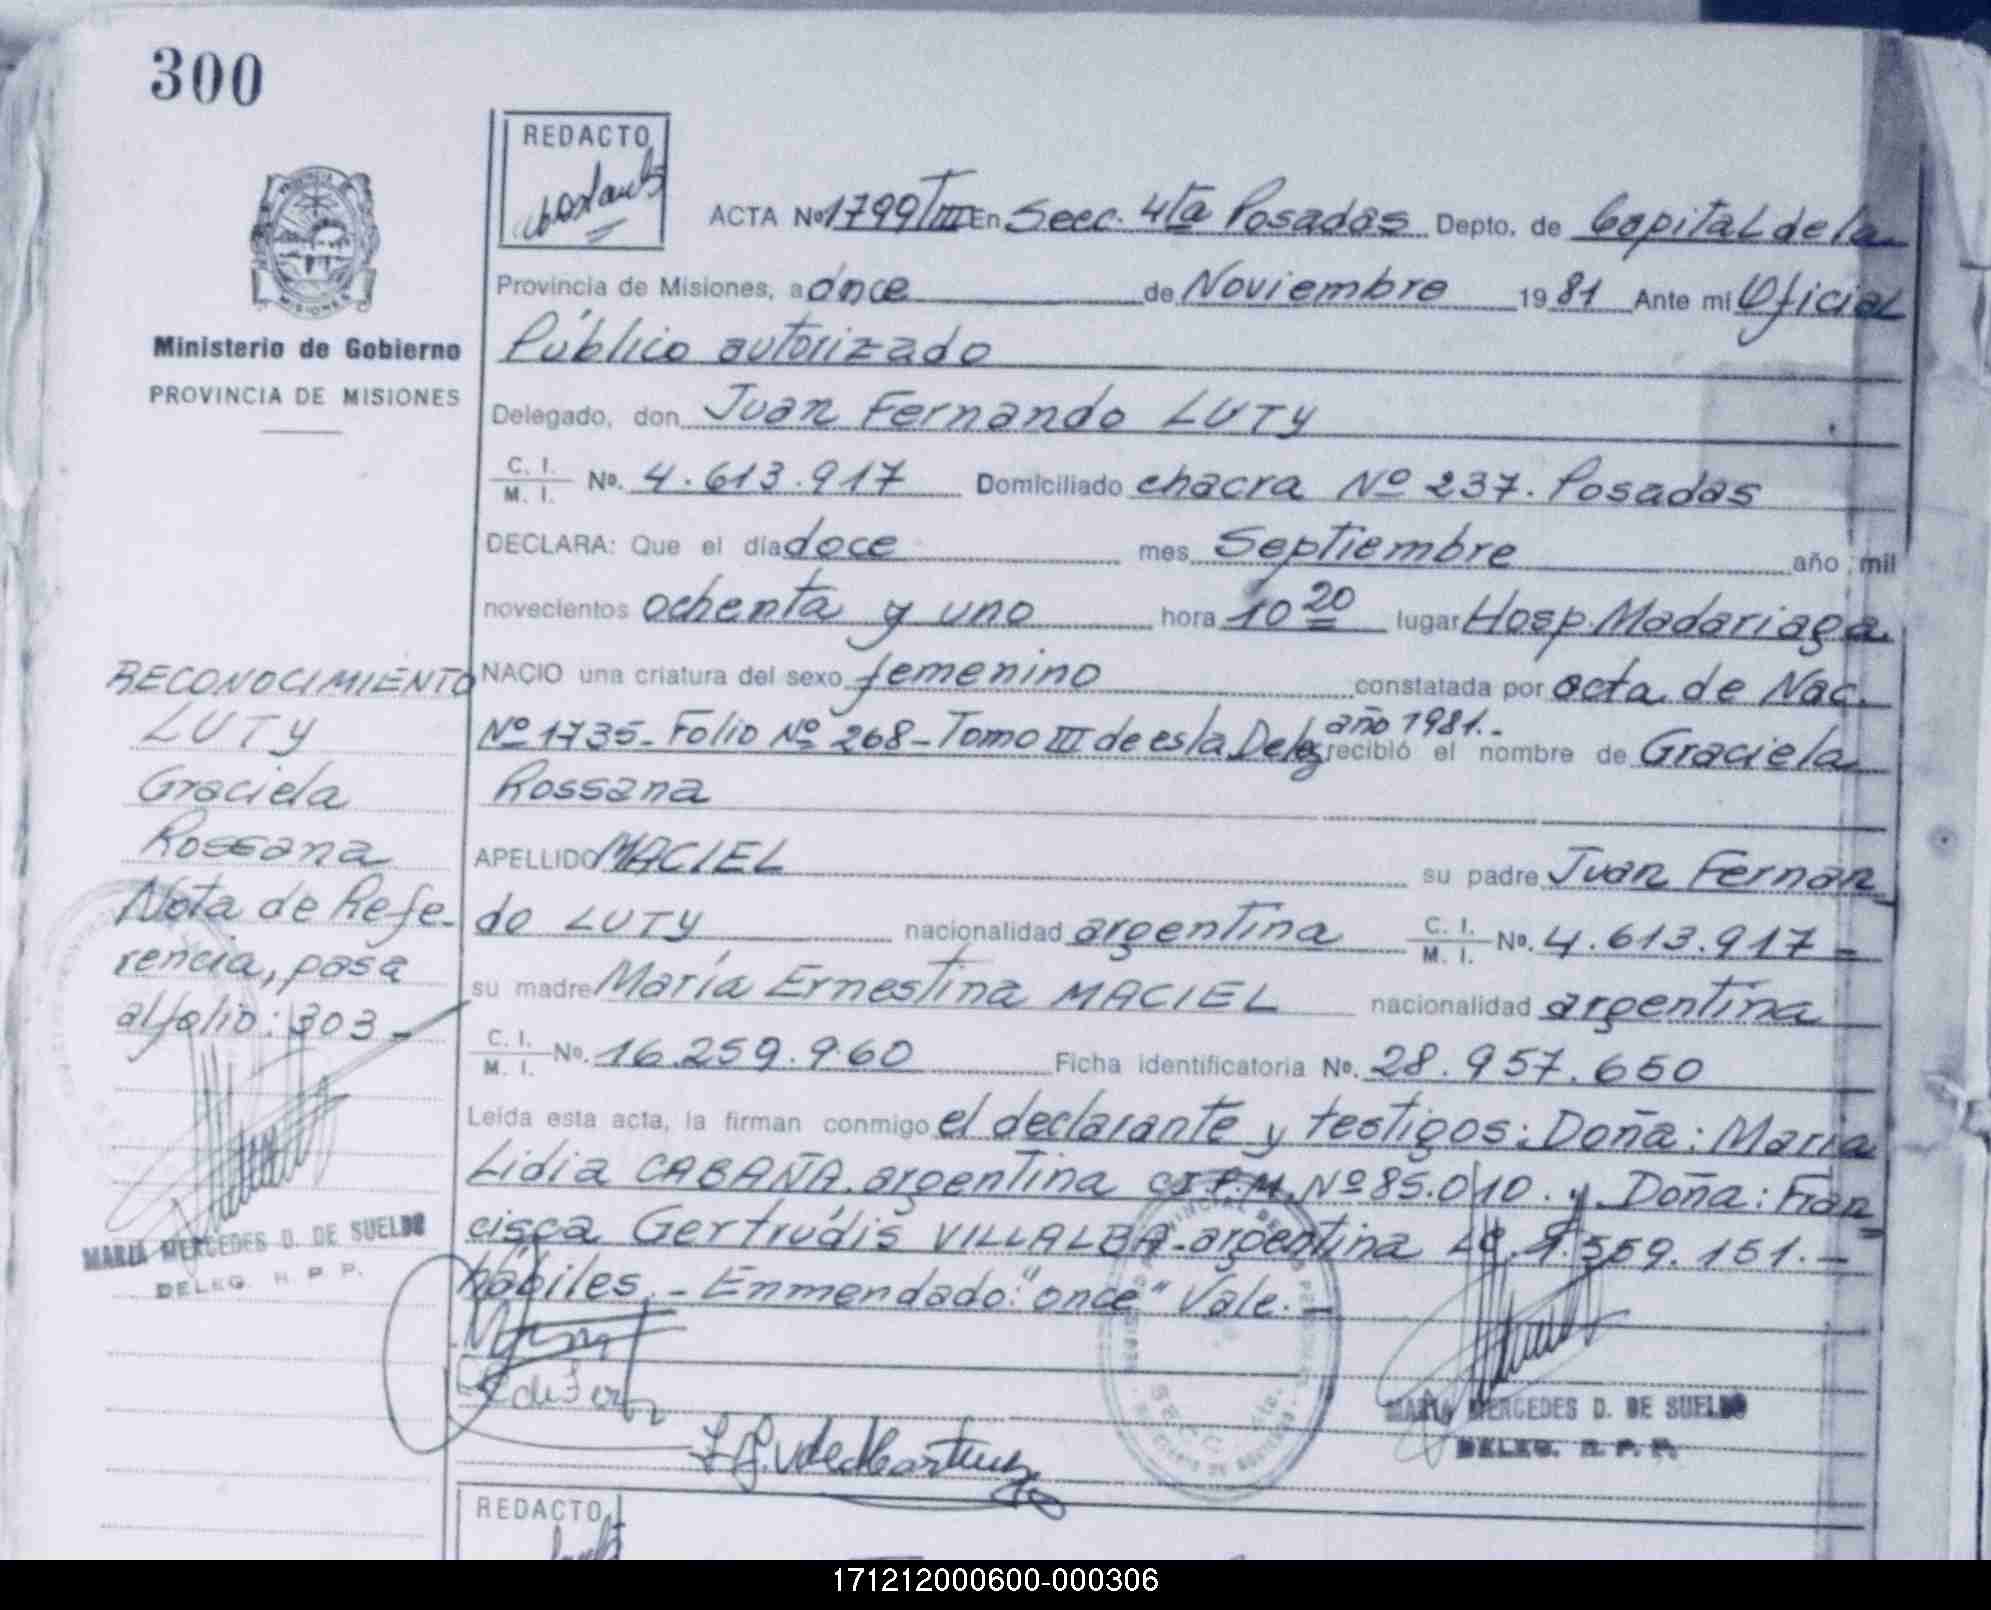 300
REDACTO
ACTA Nº 1799/TIII En Secc. 4ta Posadas Depto. de Capital de la
Provincia de Misiones, a once de Noviembre 1981 Ante mi Oficial
Público autorizado
Ministerio de Gobierno
PROVINCIA DE MISIONES
Delegado, don Juan Fernando LUTY
C. I. / M. I. No. 4.613.917 Domiciliado chacra Nº 237. Posadas
DECLARA: Que el día doce mes Septiembre año mil
novecientos ochenta y uno hora 10 20 lugar Hosp. Madariaga
NACIO una criatura del sexo femenino constatada por acta de Nac.
Nº 1735- Folio Nº 268- Tomo III de esta Deleg año 1981.- recibió el nombre de Graciela
Rossana
APELLIDO MACIEL su padre Juan Fernan-
do LUTY nacionalidad argentina C. I. / M. I. No. 4.613.917-
su madre María Ernestina MACIEL nacionalidad argentina
C. I. / M. I. No. 16.259.960 Ficha identificatoria No. 28.957.650
Leída esta acta, la firman conmigo el declarante y testigos: Doña: María
Lidia CABAÑA. argentina C.I.P.M. Nº 85.010. y Doña: Fran-
cisca Gertrudis VILLALBA-argentina LC. 1.559.151.-
hábiles.- Enmendado: "once" Vale.-
RECONOCIMIENTO
LUTY
Graciela
Rossana
Nota de Refe-
rencia, pasa
al folio: 303-
MARIA MERCEDES D. DE SUELDO
DELEG. R. P. P.
MARIA MERCEDES D. DE SUELDO
DELEG. R. P. P.
REDACTO
171212000600-000306